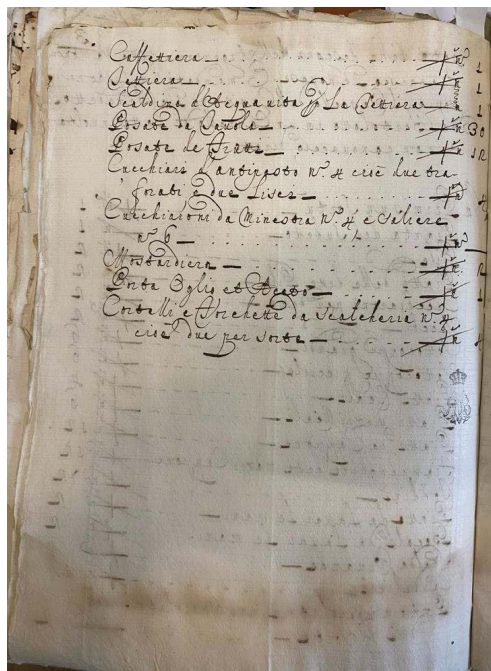 Caffettiera n.º 1
Tettiera n.º 1
Scaldino d'Acqua vita p La Tettiera n 1
Posate da Tavola n.º 30
Posate de frutti n.º 12
Cucchiari d'antiposto n.º 4 cioè due tra
forati e due lisci n.º 4
Cucchiaroni da Minestra n.º 4 e saliere
n.º 6 n.º
Mostardiera n.º
Porta Oglio et Aceto n.º 1
Cortelli e Forchette da scalcheria n.º 4
cioè due per sorte n.º 4